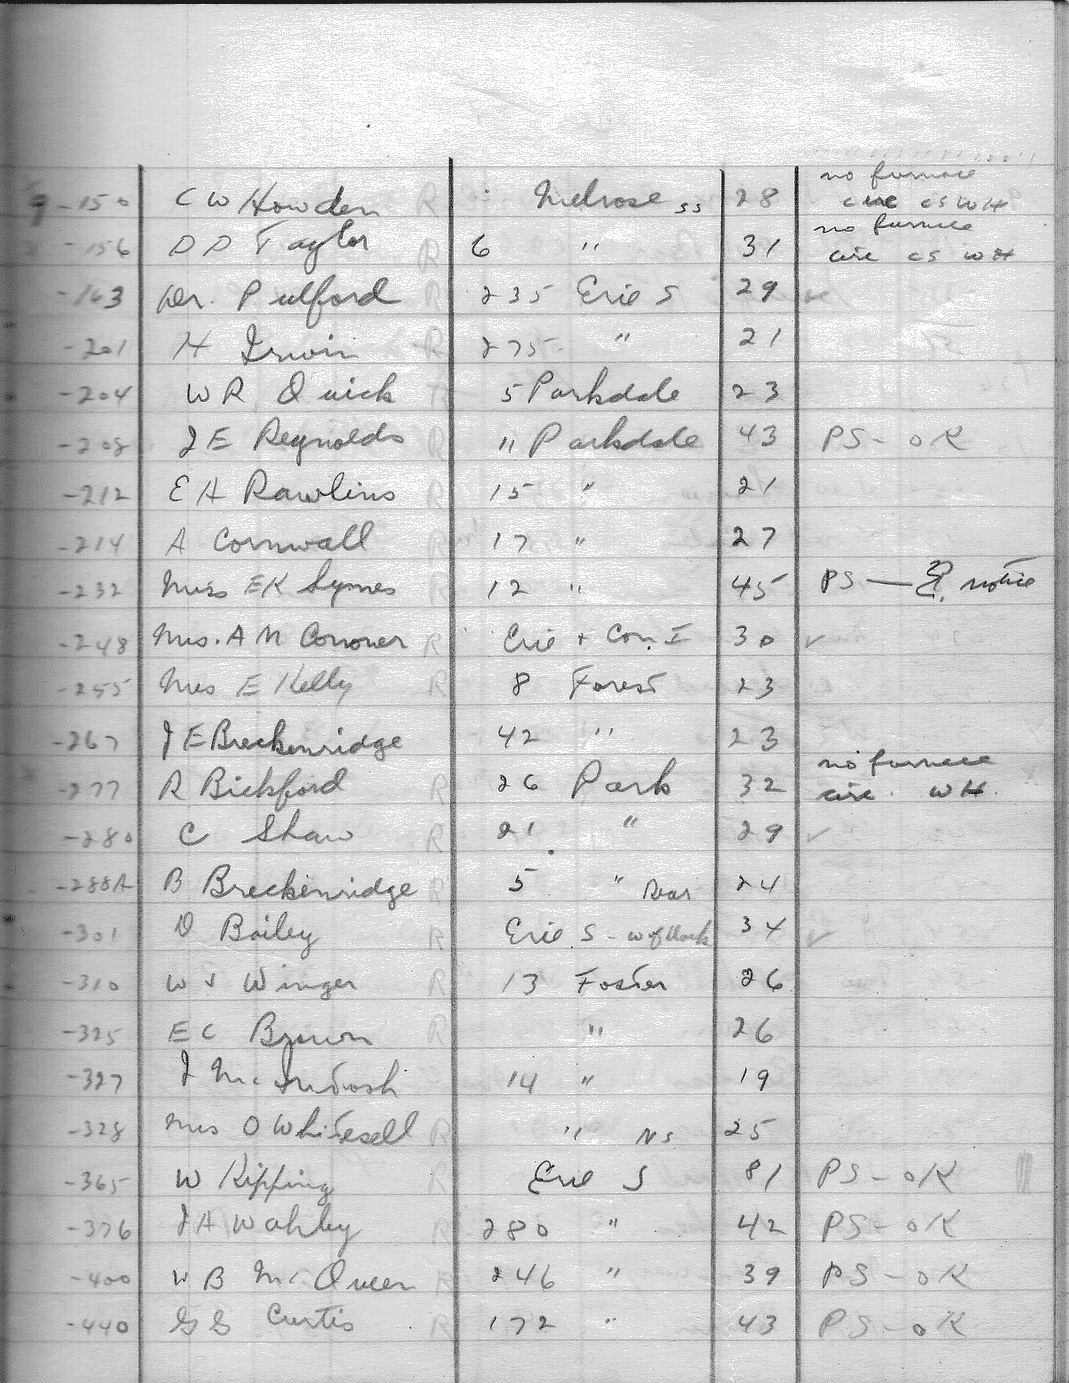 no furnace
9-150 C W Howden R Melrose SS 28 circ CS WH
no furnace
-156 D D Taylor R 6 " 31 circ CS WH
-163 Dr. Pulford R 235 Erie S 29 ✓
-201 H Irwin R 275 " 21
-204 W R Quick R 5 Parkdale 23
-208 J E Reynolds R 11 Parkdale 43 PS - OK
-212 E A Rawlins R 15 " 21
-214 A Cornwall R 17 " 27
-232 Miss EK Symes R 12 " 45 PS — notice
-248 Mrs. A M Conover R Erie + Con. I 30 ✓
-255 Mrs E Kelly R 8 Forest 23
-267 J E Breckenridge 42 " 23
no furnace
-277 R Bickford R 26 Park 32 circ. WH.
-280 C Shaw R 21 " 29 ✓
-288A B Breckenridge R 5 " Rear 24
-301 D Bailey R Erie S - 34 ✓
-310 W J Winger R 13 Foster 26
-325 E C Brown R " 26
-327 J McIntosh 14 " 19
-328 Mrs O Whitesell R " NS 25
-365 W Kipping R Erie S 81 PS - OK
-376 J A R 280 " 42 PS - OK
-400 W B McQueen R 246 " 39 PS - OK
-440 G G Curtis R 172 " 43 PS - OK